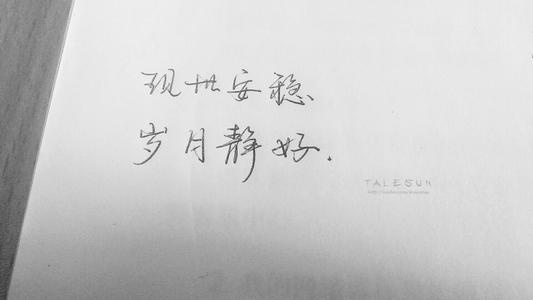 现世安稳、
岁月静好.
TALESUN